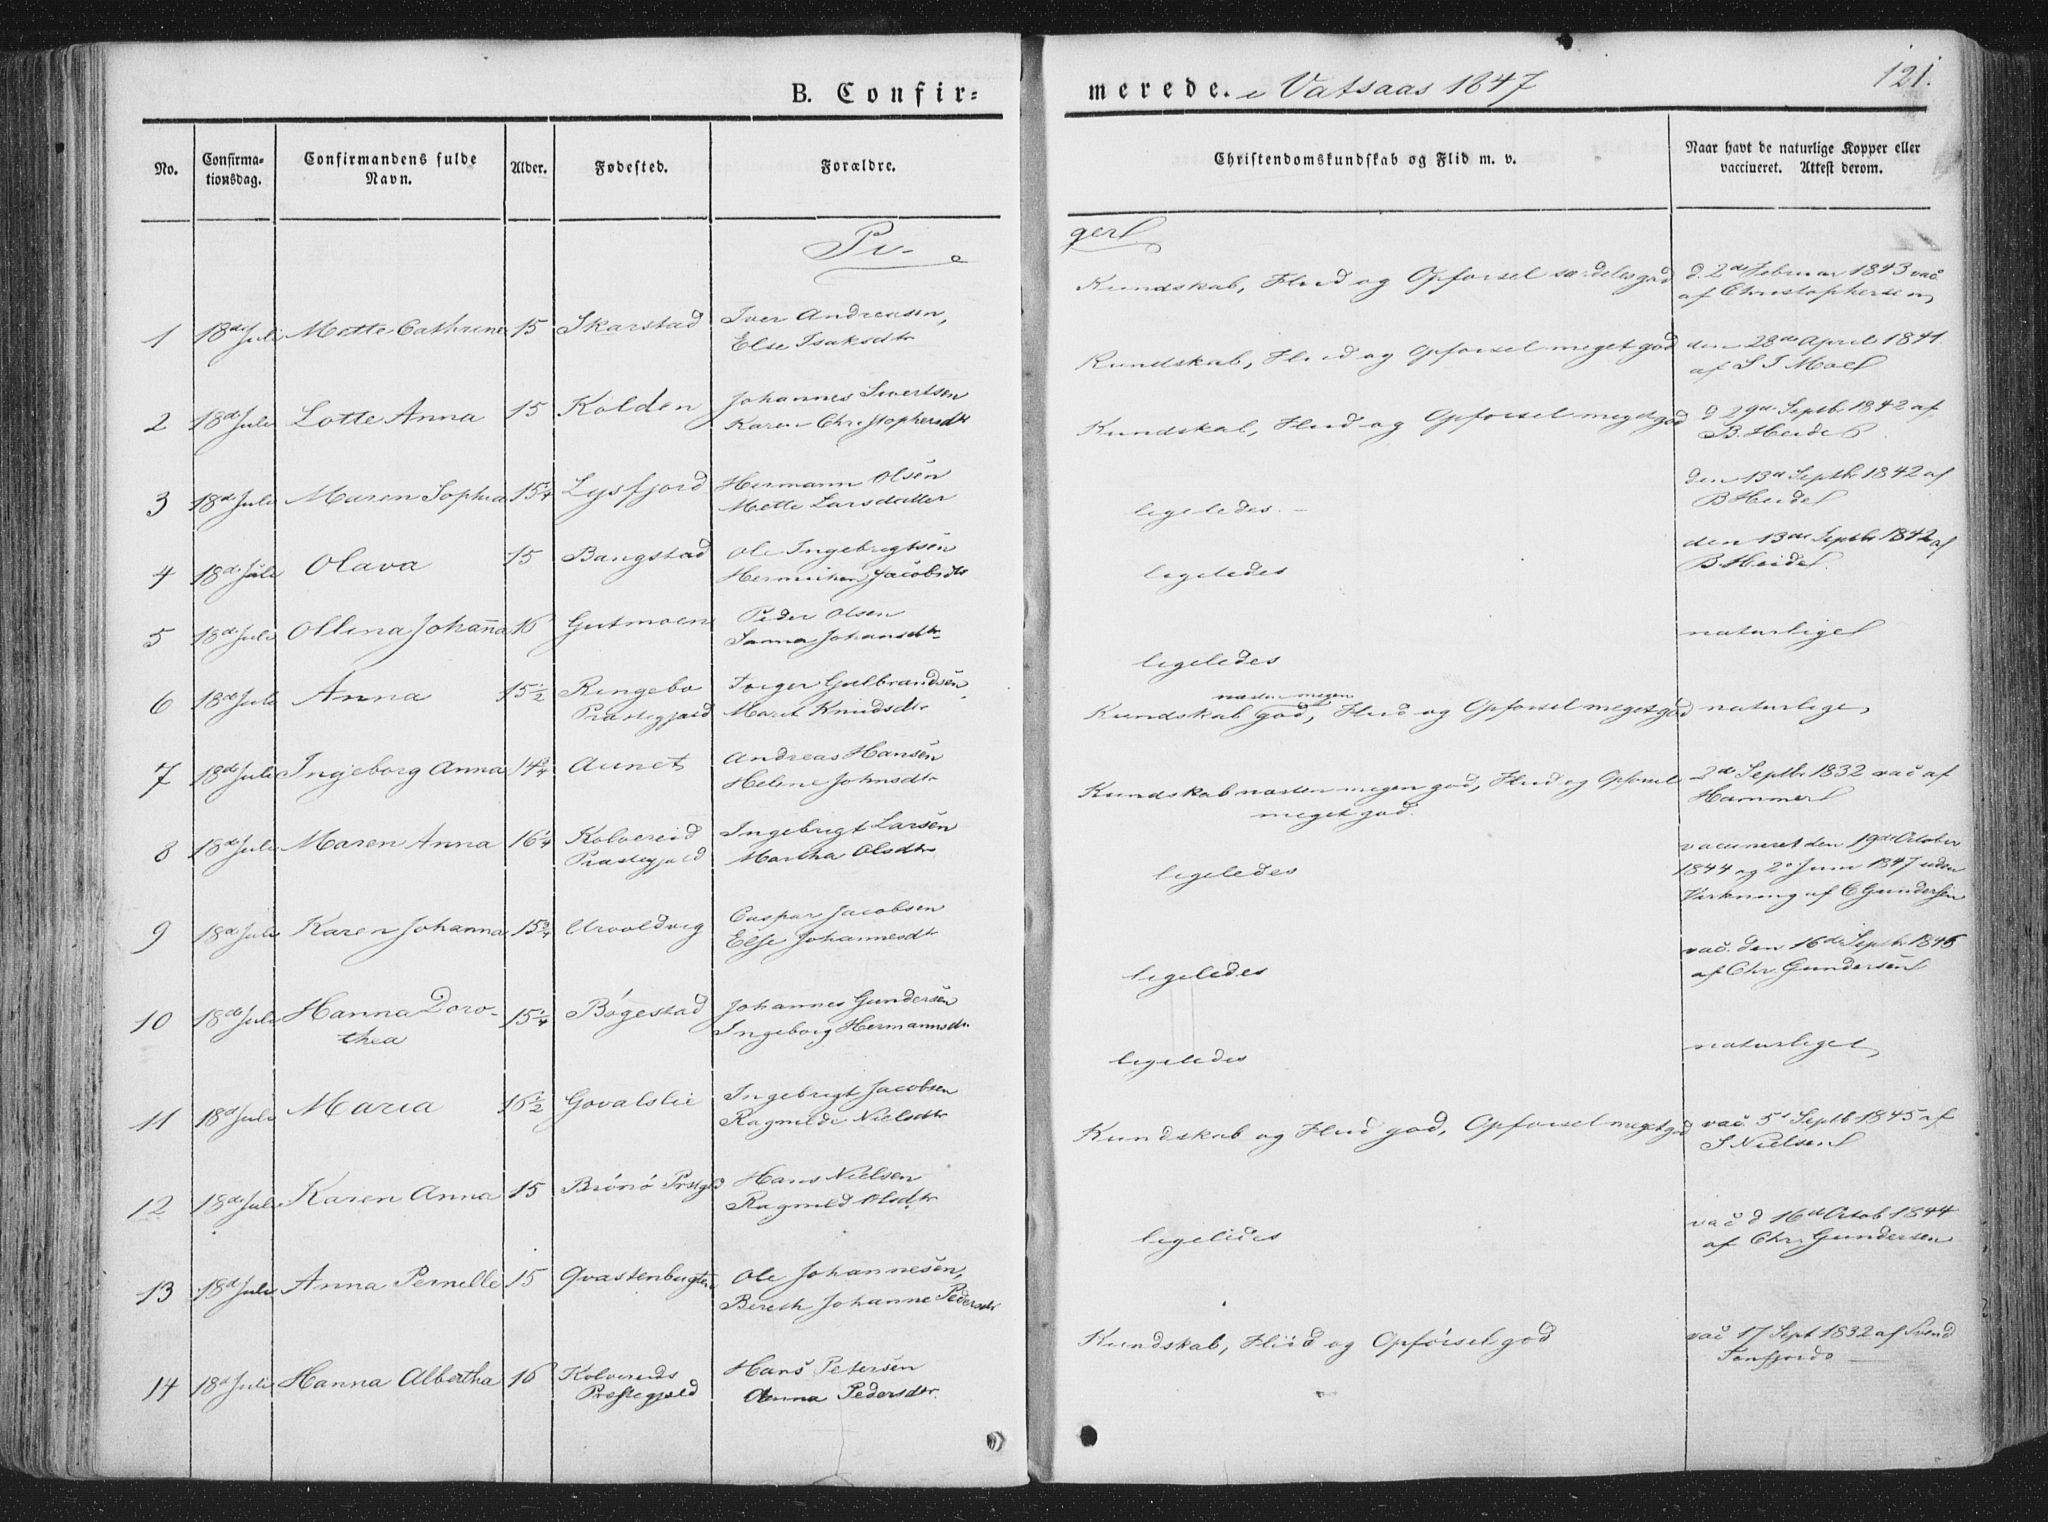 B. Confir-
merede. i Vatsaas 1847
121.
No.
Confirma-
tionsdag.
Confirmandens fulde
Navn.
Alder.
Fødested.
Forældre.
Christendomskundskab og Flid m. v.
Naar havt de naturlige Kopper eller
vaccineret. Attest derom.
Pi-
ger
1 18de Juli Mette Cathrine 15 Skarstad Iver Andreasen,
Else Isaksdtr
Kundskab, Flid og Opførsel særdeles god
d. 2de Februar 1843 vac
af Christophersen
2 18de Juli Lotte Anna 15 Kolden Johannes Sivertsen
Karen Christophersdtr
Kundskab, Flid og Opførsel meget god
den 28de April 1841
af S I Moe
3 18de Juli Maren Sophia 15 1/4 Lysfjord Hermann Olsen
Mette Larsdatter
Kundskab, Flid og Opførsel meget god
d. 29de Septb. 1842 af
B. Heide
4 18de Juli Olava 15 Bangstad Ole Ingebrigtsen
Jacobsdtr
ligeledes.
den 13de Septbr 1842 af
B Heide
5 18de Juli Ollina Johanna 16 Gutmoen Peder Olsen
Johansdtr
ligeledes
den 13de Septbr 1842 af
B. Heide
6 18de Juli Anna 15 1/2 Ringebo
Præstegjeld
Torger Gulbrandsen
Marit Knudsdtr
ligeledes
naturlige
7 18de Juli Ingeborg Anna 14 3/4 Aunet Andreas Hansen
Helene Johnsdtr
næsten megen
Kundskab god, Flid og Opførsel meget god
naturlige
8 18de Juli Maren Anna 16 1/4 Kolvereid
Præstegjeld
Ingebrigt Larsen
Martha Olsdtr
Kundskab næsten megen god, Flid og Opførsel
meget god.
2de Septbr 1832 vac af
Hammer
9 18de Juli Karen Johanna 15 3/4 Urvoldvig Caspar Jacobsen
Else Johannesdtr
ligeledes
vaccineret den 19de October
1844 og 2 Juni 1847 uden
Virkning af C Gundersen
10 18de Juli Hanna Doro-
thea
15 1/4 Bøgestad Johannes Gundersen
Ingeborg Hermannsdtr.
ligeledes
vac. den 16de Septbr 1845
af Chr. Gundersen
11 18de Juli Maria 16 1/2 Govalslie Ingebrigt Jacobsen
Ragnilde Nielsdtr
ligeledes
naturlige
12 18de Juli Karen Anna 15 Brønø Prstgld Hans Nielsen
Ragnild Olsdtr
Kundskab og Flid god, Opførsel meget god
vac 5 Septb 1845 af
S Nielsen
13 18de Juli Anna Pernelle 15 Qvastenbugten Ole Johannesen,
Bereth Johanne Pedersdtr
ligeledes
vac d 16de Octob 1844
af Chr. Gundersen
14 18de Juli Hanna Albertha 16 Kolvereids
Præstegjeld
Hans Petersen
Anna Pedersdtr.
Kundskab, Fliid og Opførsel god
vac 17 Sept 1832 af Svend